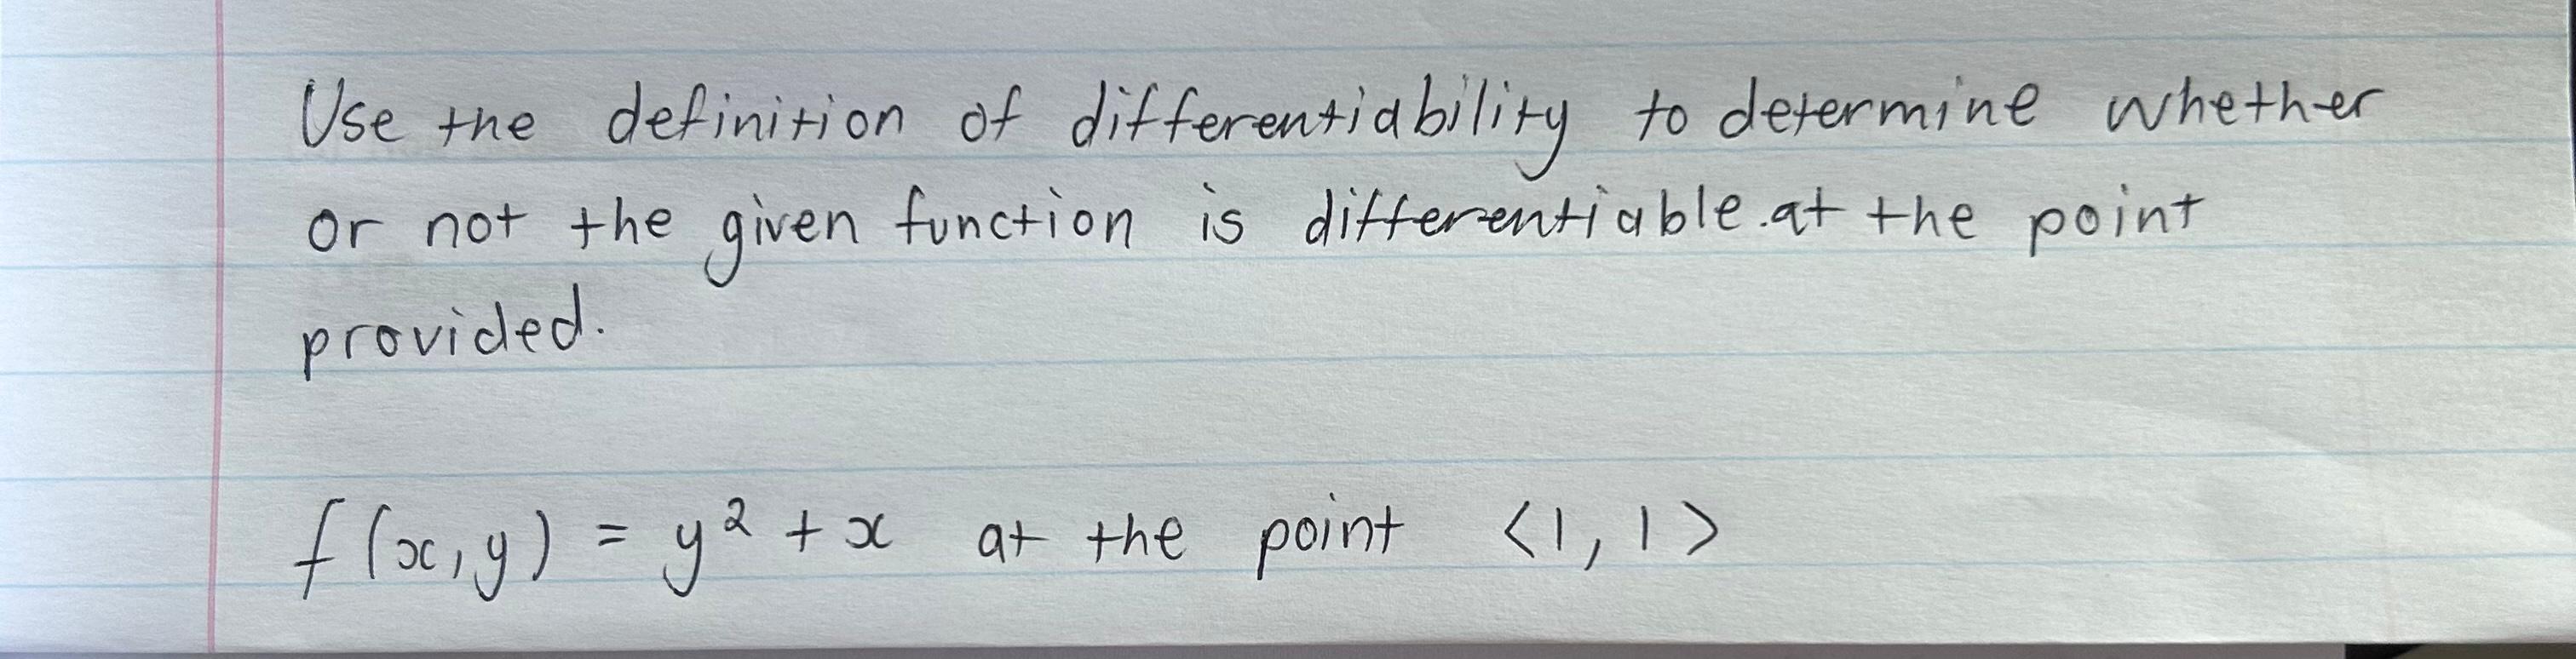 Use the definition of differentiability to determine whether
or not the given function is differentiable.at the point
provided.
f(x,y) = y² + x at the point <1, 1>